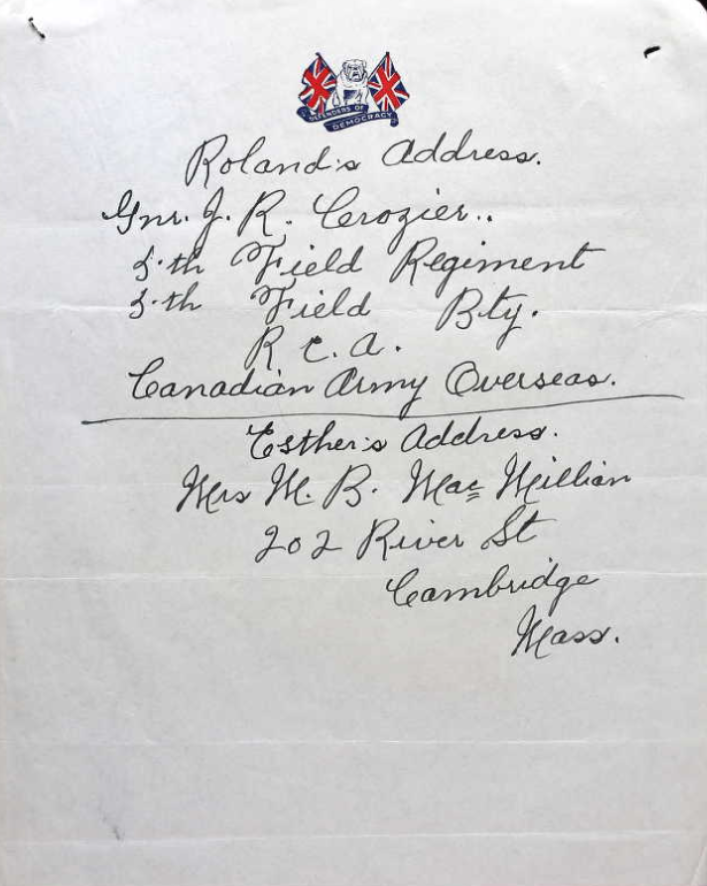 DEFENDERS OF
DEMOCRACY
Roland's Address.
Gnr. J. R. Crozier..
5.th Field Regiment
5.th Field Bty.
R C. A.
Canadian Army Overseas.
Esther's Address.
Mrs M. B. Mac Millian
202 River St
Cambridge
Mass.